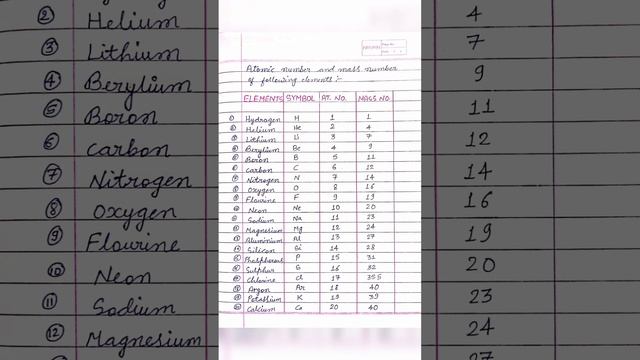 Atomic number and mass number
of following elements :-
ELEMENTS SYMBOL AT. NO. MASS. NO.
① Hydrogen H 1 1
② Helium He 2 4
③ Lithium Li 3 7
④ Berylium Be 4 9
⑤ Boron B 5 11
⑥ Carbon C 6 12
⑦ Nitrogen N 7 14
⑧ Oxygen O 8 16
⑨ Flourine F 9 19
⑩ Neon Ne 10 20
⑪ Sodium Na 11 23
⑫ Magnesium Mg 12 24
⑬ Aluminium Al 13 27
⑭ Silicon Si 14 28
⑮ Phosphorus P 15 31
⑯ Sulphur S 16 32
⑰ Chlorine Cl 17 35.5
⑱ Argon Ar 18 40
⑲ Potassium K 19 39
⑳ Calcium Ca 20 40
② Helium
③ Lithium
④ Berylium
⑤ Boron
⑥ Carbon
⑦ Nitrogen
⑧ Oxygen
⑨ Flourine
⑩ Neon
⑪ Sodium
⑫ Magnesium
4
7
9
11
12
14
16
19
20
23
24
27